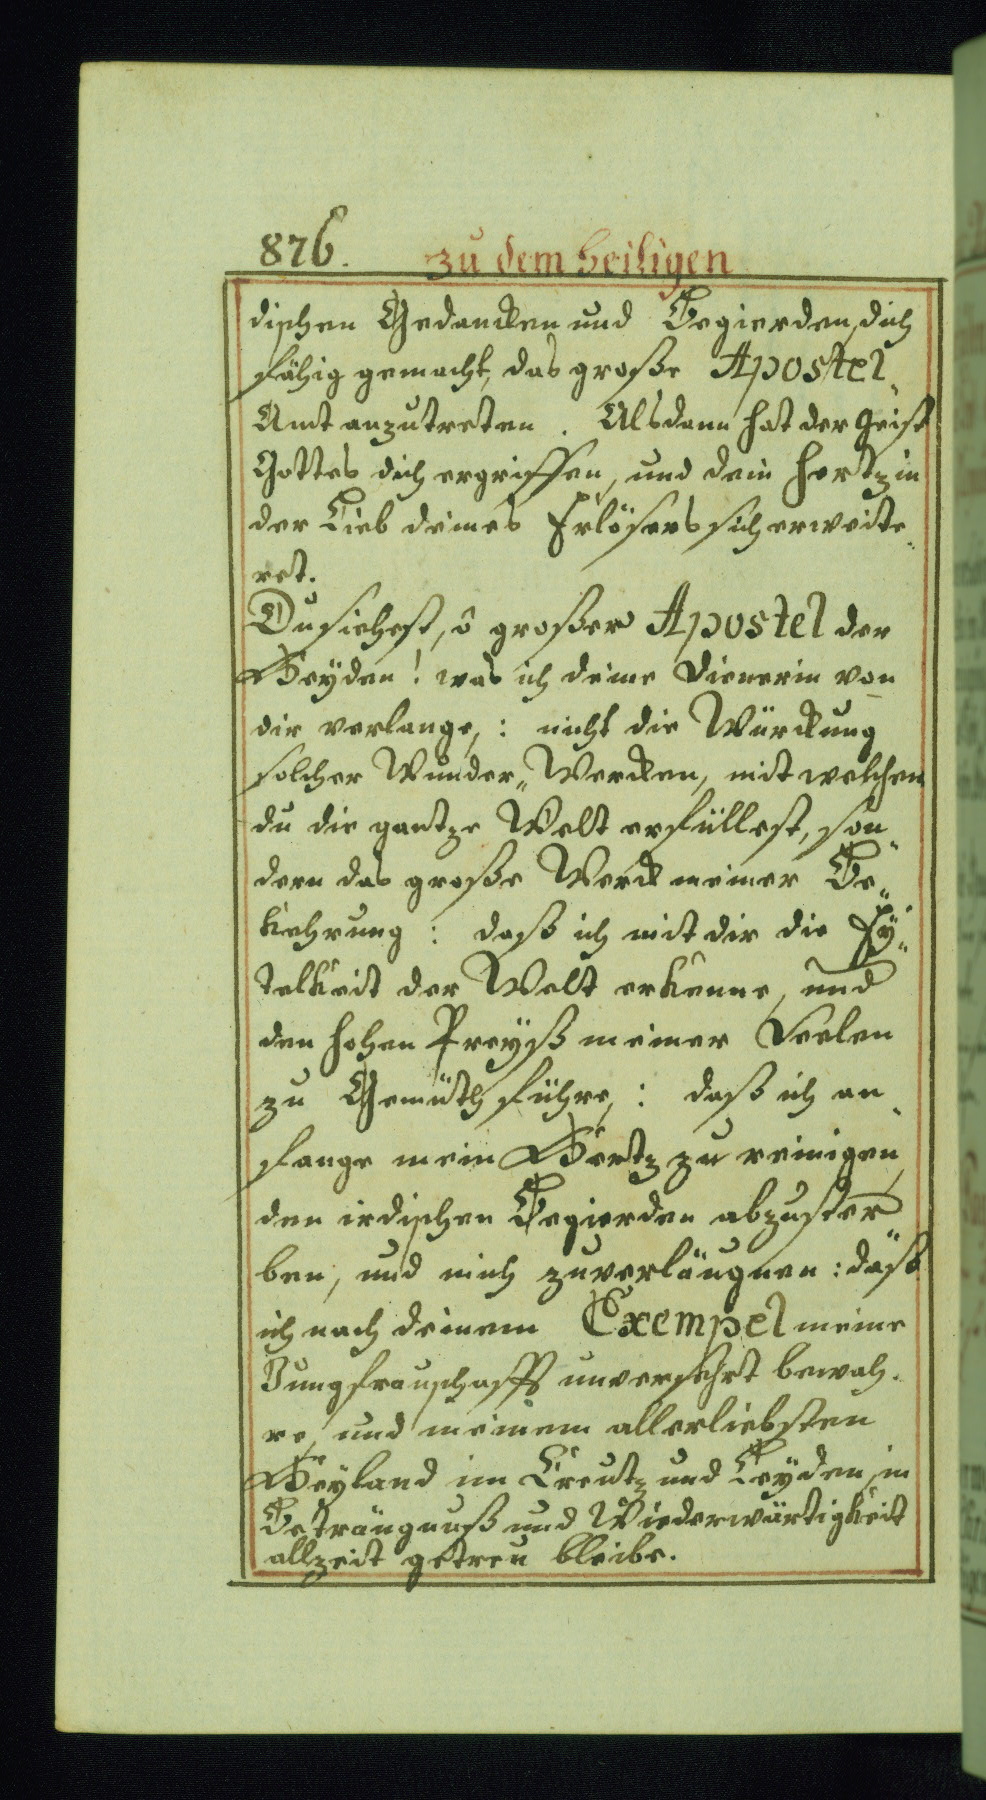 876. zu dem heiligen
dischen Gedancken und Begierden, dich
fähig gemacht, das große Apostel„
Amt anzutreten. Alsdann hat der Geist
Gottes dich ergriffen, und dein Hertz in
der Lieb deines Erlösers sich erweite„
ret.
Du siehest, ô großer Apostel der
Heyden! was ich deine Dienerin von
dir verlange,: nicht die Würckung
solcher Wunder„Wercken, mit welchen
du die gantze Welt erfüllest, son„
dern das große Werck meiner Be„
kehrung: daß ich mit dir die Ey„
telkeit der Welt erkenne, und
den hohen Preyß meiner Seelen
zu Gemüth führe,: daß ich an„
fange mein Hertz zu reinigen,
den irdischen Begierden abzuster„
ben, und mich zuverläugnen: daß
ich nach deinem Exempel meine
Jungfrauschafft unversehrt bewah„
re, und meinem allerliebsten
Heyland im Creutz und Leyden, in
Beträngnuß und Wiederwärtigkeit
allzeit getreu bleibe.